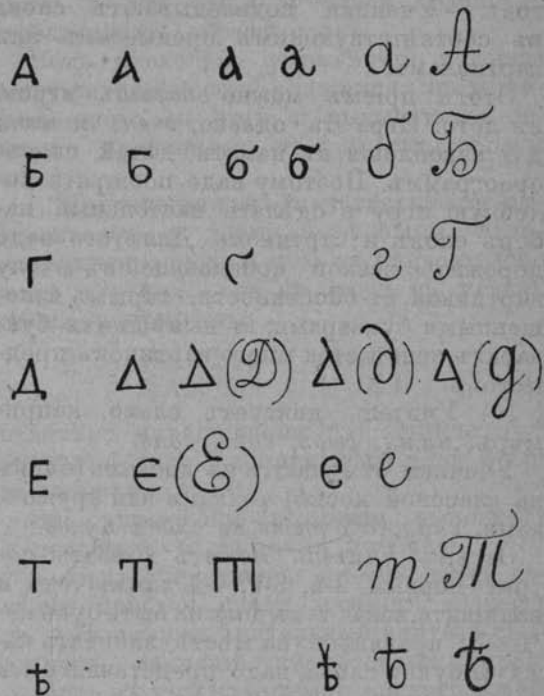 А А а а а А
Б Б б б б Б
Г г г Г
Д Δ Δ(Д) Δ(д) Δ(д)
Е є(Е) е е
Т Т Ш т Т
ѣ ѣ ѣ ѣ